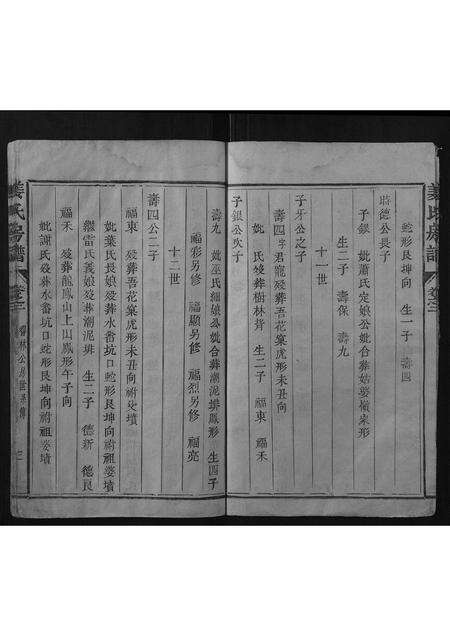 蛇形艮坤向 生一子 壽四
時德公長子
子銀 妣蕭氏定娘公妣合葬
生二子 壽保 壽九
十一世
子牙公之子
壽四 字君寵歿葬吾花窠虎形未丑向
妣 氏歿葬樹林背 生二子 福東 福禾
子銀公次子
壽九 妣巫氏細娘公妣合葬湖泥排鳳形 生四子
福彩另修 福顯另修 福烈另修 福亮
十二世
壽四公二子
福東 歿葬吾花窠虎形未丑向祔父墳
妣葉氏長娘歿葬水畬坑口蛇形艮坤向祔祖婆墳
繼雷氏義娘歿葬湖泥排 生二子 德新 德良
福禾 歿葬龍鳳山上山鳳形午子向
妣謝氏歿葬水畬坑口蛇形艮坤向祔祖婆墳
姜氏房譜 卷三